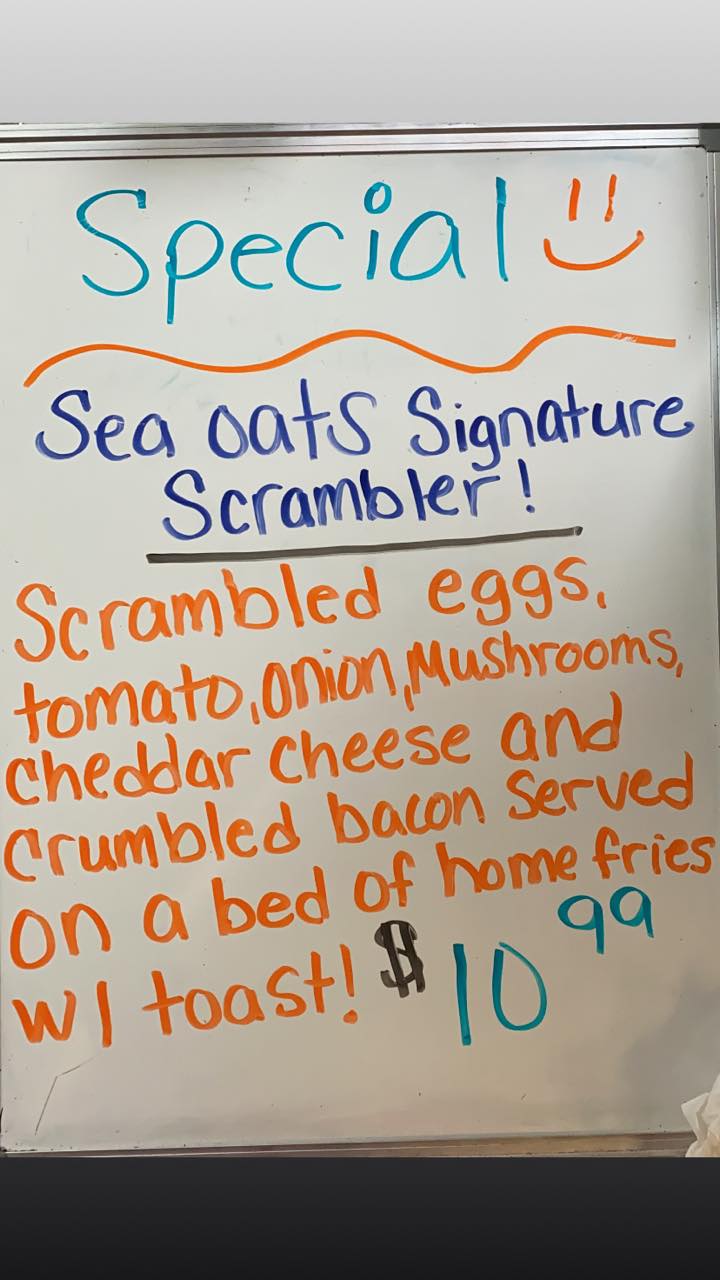 Special
Sea oats Signature
Scrambler!
Scrambled eggs,
tomato, onion, Mushrooms,
cheddar cheese and
crumbled bacon served
on a bed of home fries
w/ toast! $10 99